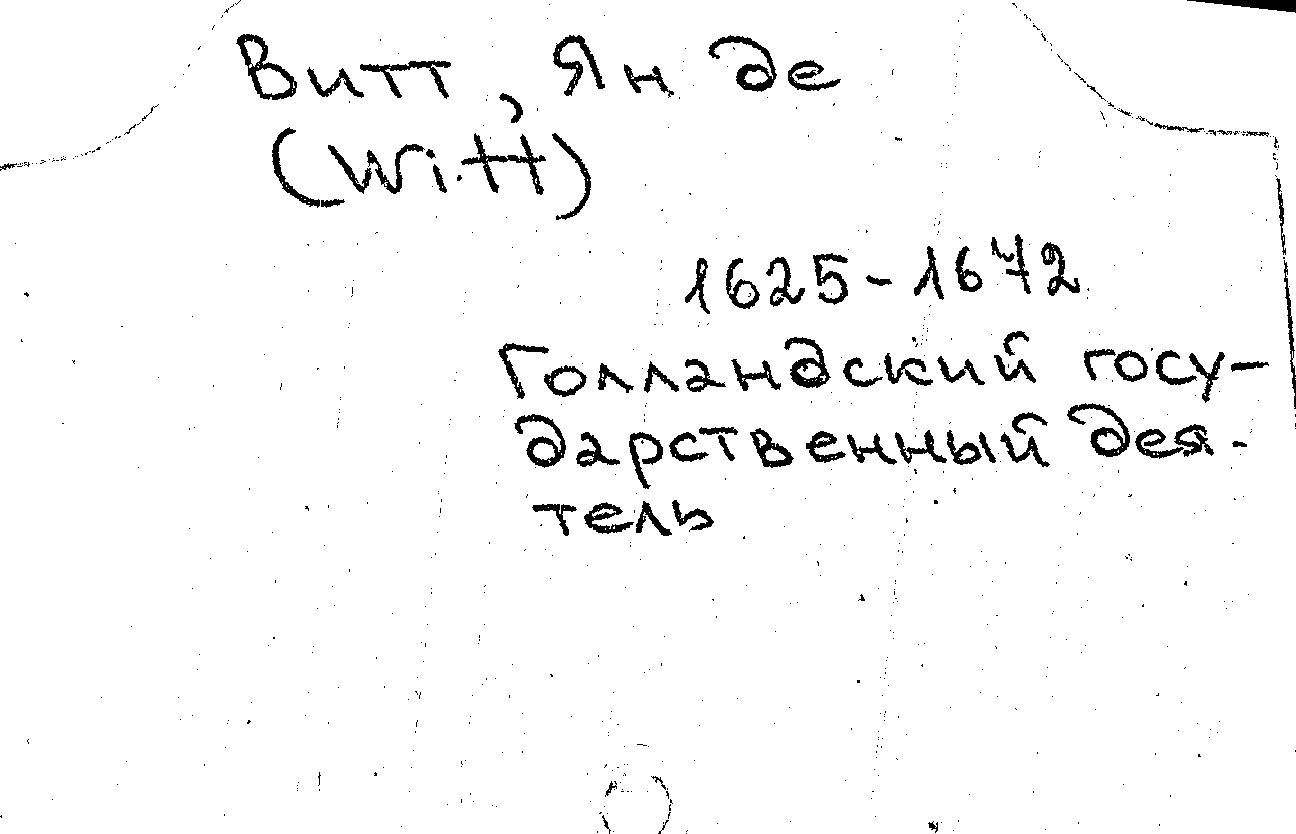 Витт, Ян де
(Witt)
1625-1672
Голландский госу-
дарственный дея-
тель